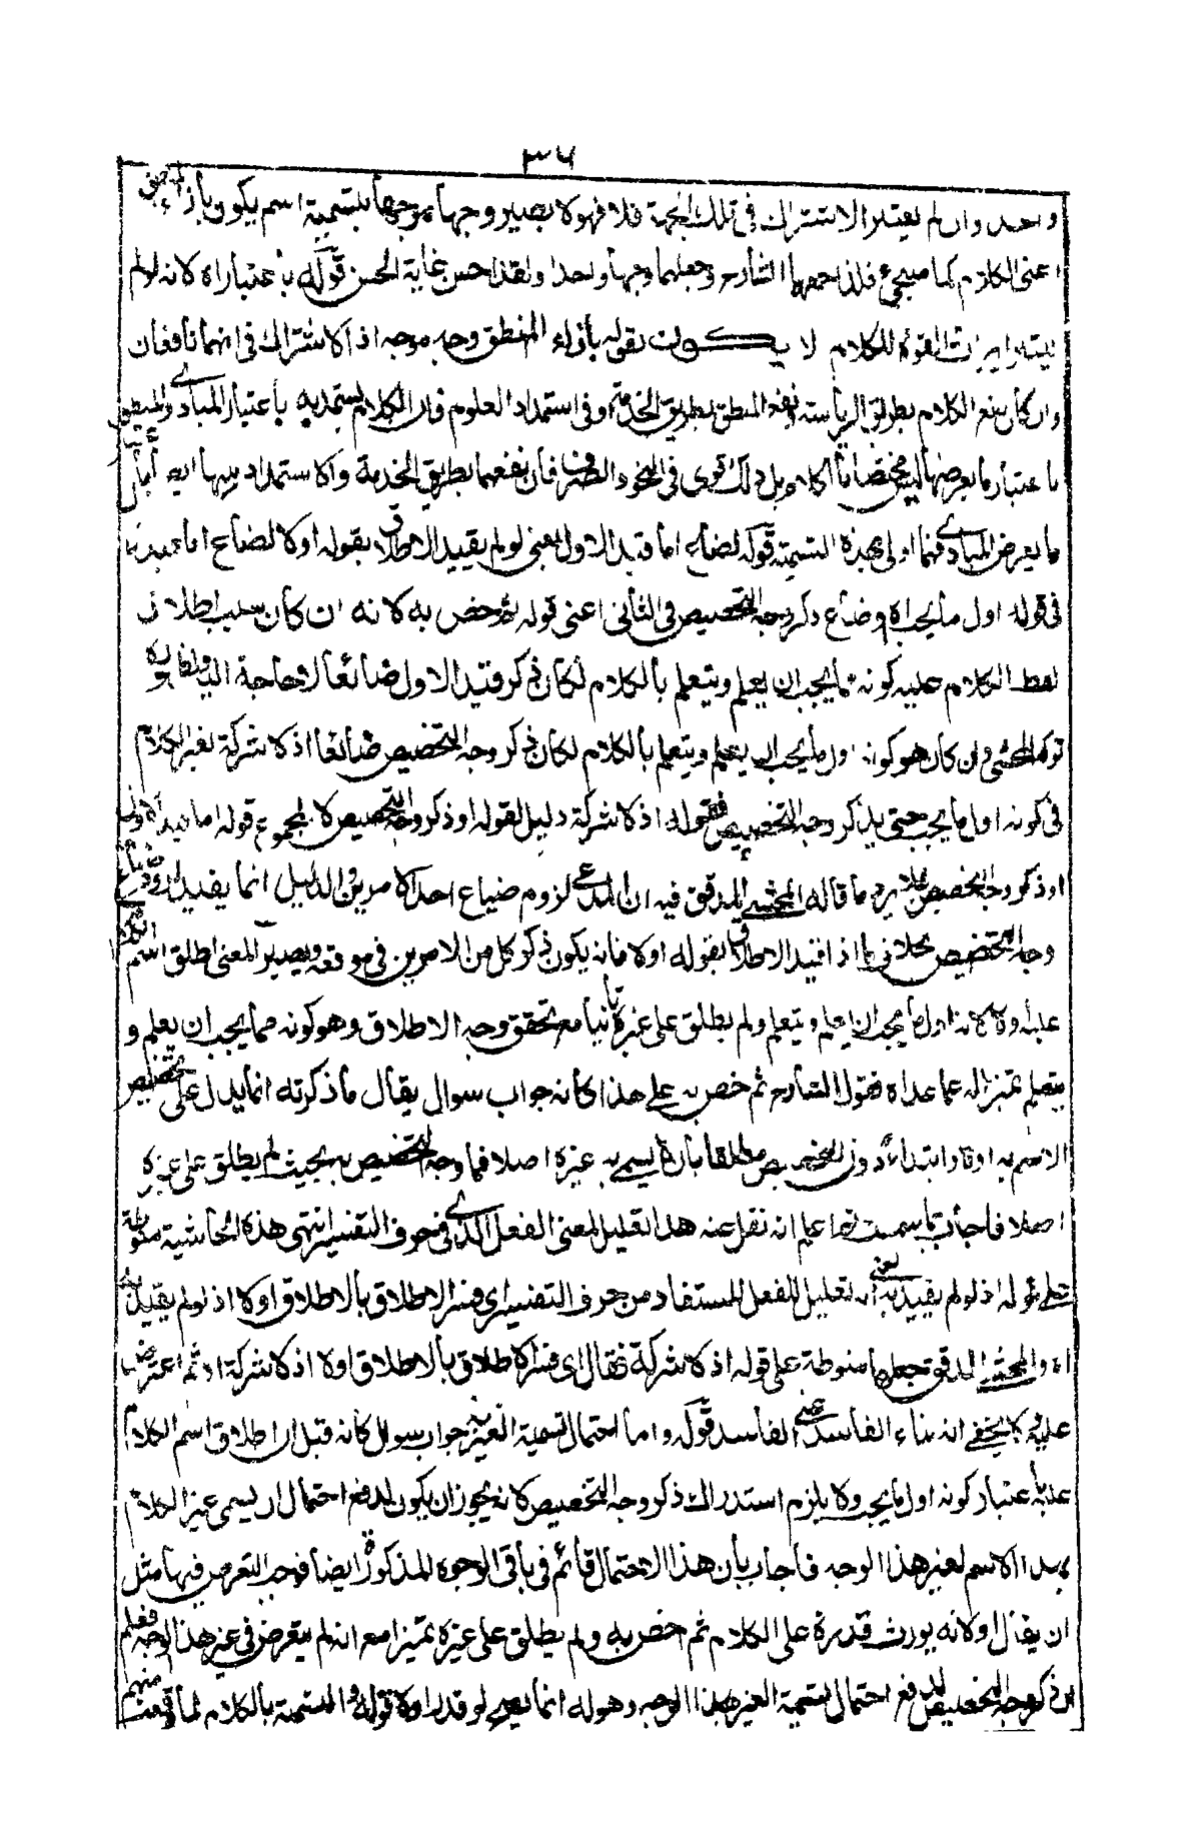 ٣٦
واحد وان لم يعتبر الاشتراك فى تلك الجهة فلا فهو لا يصير وجها موجها بتسمية اسم يكون بأزاء
اعنى الكلام كما سيجئ فلذا جمعهما الشارح وجعلهما وجها واحدا ولقد احسن غاية الحسن قوله باعتباراه لانه لو لم
القوة للكلام لا يكون بقوله بأزاء المنطق وجه موجه اذ لا اشتراك فى انهما نافعان
وان كان نفع الكلام بطريق الرياسة ونفع المنطق بطريق الخدمة او فى استمداد العلوم فان الكلام يستمد به باعتبار المبادى والمنطق
باعتبار ما يعرضها ليس مختصا بالكلام بل ذلك قوى فى النحو والصرف فان نفعهما بطريق الخدمة والاستمداد بهما ايضا
ما يعرض المبادى فهما اولى بهذه التسمية قوله لضاع اما قيد الاول يعنى لو لم يقيد الاطلاق بقوله اولا لضاع اما قيد
فى قوله اول ما يجب اه وضاع ذكر وجه التخصيص فى الثانى اعنى قوله ثم خص به لانه ان كان سبب اطلاق
لفظ الكلام عليه كونه مما يجب ان يعلم ويتعلم بالكلام لكان ذكر قيد الاول ضائعا لا حاجة اليه
وان كان هو كونه اول ما يجب ان يعلم ويتعلم بالكلام لكان ذكر وجه التخصيص ضائعا اذ لا شركة لغير الكلام
فى كونه اول ما يجب حتى يذكر وجه التخصيص فقوله اذ لا شركة دليل لقوله او ذكر وجه التخصيص لا لمجموع قوله اما قيد
او ذكر وجه التخصيص فلا يرد ما قاله المحشى المدقق فيه ان المدعى لزوم ضياع احد الامرين والدليل انما يفيد
وجه التخصيص بخلاف ما اذا قيد الاطلاق بقوله اولا فانه يكون ذكر كل من الامرين فى موقعه ويصير المعنى اطلق اسم
عليه اولا لانه اول ما يجب ان يعلم ويتعلم ولم يطلق على غيره ثانيا مع تحقق وجه الاطلاق وهو كونه مما يجب ان يعلم و
يتعلم تميزا له عما عداه فقول الشارح ثم خص به على هذا كانه جواب سوال يقال ما ذكرته انما يدل على تخصيص
الاسم به اولا وابتداء دون التخصيص مطلقا بان لا يسمى به غيره اصلا فما وجه التخصيص به بحيث لم يطلق على غيره
اصلا فاجاب انه نقل عنه هذا تعليل لمعنى الفعل الذى فى حرف التفسير انتهى هذه الحاشية منوطة
على قوله اذ لو لم يقيد به يعنى انه تعليل للفعل المستفاد من حرف التفسير اى فسر الاطلاق بالاطلاق اولا اذ لو لم يقيد
اه والمحشى المدقق جعلها منوطة على قوله اذ لا شركة فقال اى فسر الاطلاق بالاطلاق اولا اذ لا شركة اه ثم اعترض
عليه ولا يخفى انه بناء الفاسد على الفاسد قوله واما احتمال تسمية الغير به جواب سوال كانه قيل ان اطلاق اسم الكلام
عليه باعتبار كونه اول ما يجب ولا يلزم استدراك ذكر وجه التخصيص لانه يجوز ان يكون لدفع احتمال ان يسمى غير الكلام
بهذا الاسم لغير هذا الوجه فاجاب بأن هذا الاحتمال قائم فى باقى الوجوه المذكورة ايضا فوجب التعرض فيها مثل
ان يقال اولا لانه يورث قدرة على الكلام ثم خص به ولم يطلق على غيره تميزا مع انه لم يتعرض فى غير هذا الوجه فعلم
ان ذكر وجه التخصيص لدفع احتمال تسمية الغير بهذا الوجه وهو له انما يصح لو قدر اولا قوله والتسمية بالكلام لما وقعت